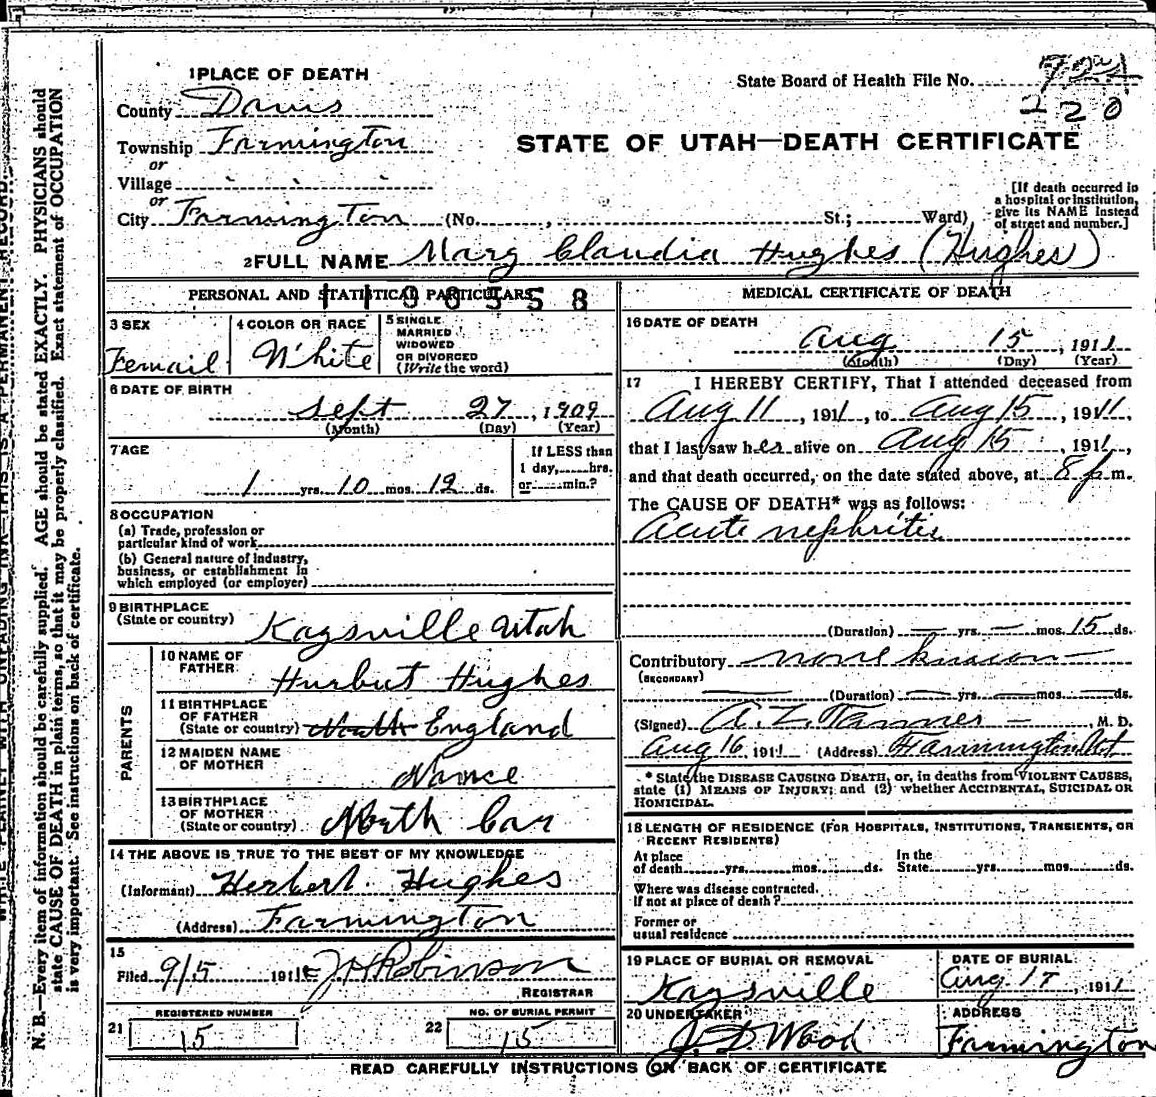 1 PLACE OF DEATH
State Board of Health File No.
220
County Davis
STATE OF UTAH—DEATH CERTIFICATE
Township Farmington
or
Village
or
City Farmington (No. , St.; Ward)
[If death occurred in
a hospital or institution,
give its NAME instead
of street and number.]
2 FULL NAME Mary Claudia Hughes (Hughes)
PERSONAL AND STATISTICAL PARTICULARS
MEDICAL CERTIFICATE OF DEATH
3 SEX
Femail
4 COLOR OR RACE
White
5 SINGLE
MARRIED
WIDOWED
OR DIVORCED
(Write the word)
6 DATE OF BIRTH
Sept 27, 1909
(Month) (Day) (Year)
7 AGE
1 yrs. 10 mos. 19 ds.
If LESS than
1 day, hrs.
or min.?
8 OCCUPATION
(a) Trade, profession or
particular kind of work
(b) General nature of industry,
business, or establishment in
which employed (or employer)
9 BIRTHPLACE
(State or country) Kaysville Utah
PARENTS
10 NAME OF
FATHER Hurbut Hughes
11 BIRTHPLACE
OF FATHER
(State or country) North England
12 MAIDEN NAME
OF MOTHER Nance
13 BIRTHPLACE
OF MOTHER
(State or country) North Car
14 THE ABOVE IS TRUE TO THE BEST OF MY KNOWLEDGE
(Informant) Herbert Hughes
(Address) Farmington
15
Filed 9/5 1911 J H Robinson
REGISTRAR
21 REGISTERED NUMBER
15
22 NO. OF BURIAL PERMIT
15
16 DATE OF DEATH
Aug 15, 1911
(Month) (Day) (Year)
17 I HEREBY CERTIFY, That I attended deceased from
Aug 11, 1911, to Aug 15, 1911,
that I last saw her alive on Aug 15, 1911,
and that death occurred, on the date stated above, at 8 p m.
The CAUSE OF DEATH* was as follows:
Acute nephritis
(Duration) — yrs. — mos. 15 ds.
Contributory none known
(SECONDARY)
(Duration) yrs. mos. ds.
(Signed) A. Z. Tanner, M. D.
Aug 16, 1911 (Address) Farmington Ut
* State the DISEASE CAUSING DEATH, or, in deaths from VIOLENT CAUSES,
state (1) MEANS OF INJURY; and (2) whether ACCIDENTAL, SUICIDAL OR
HOMICIDAL.
18 LENGTH OF RESIDENCE (FOR HOSPITALS, INSTITUTIONS, TRANSIENTS, OR
RECENT RESIDENTS)
At place
of death yrs. mos. ds.
In the
State yrs. mos. ds.
Where was disease contracted.
If not at place of death?
Former or
usual residence
19 PLACE OF BURIAL OR REMOVAL
Kaysville
DATE OF BURIAL
Aug. 17, 1911
20 UNDERTAKER
J. D. Wood
ADDRESS
Farmington
READ CAREFULLY INSTRUCTIONS ON BACK OF CERTIFICATE
N. B.—Every item of information should be carefully supplied. AGE should be stated EXACTLY. PHYSICIANS should
state CAUSE OF DEATH in plain terms, so that it may be properly classified. Exact statement of OCCUPATION
is very important. See instructions on back of certificate.